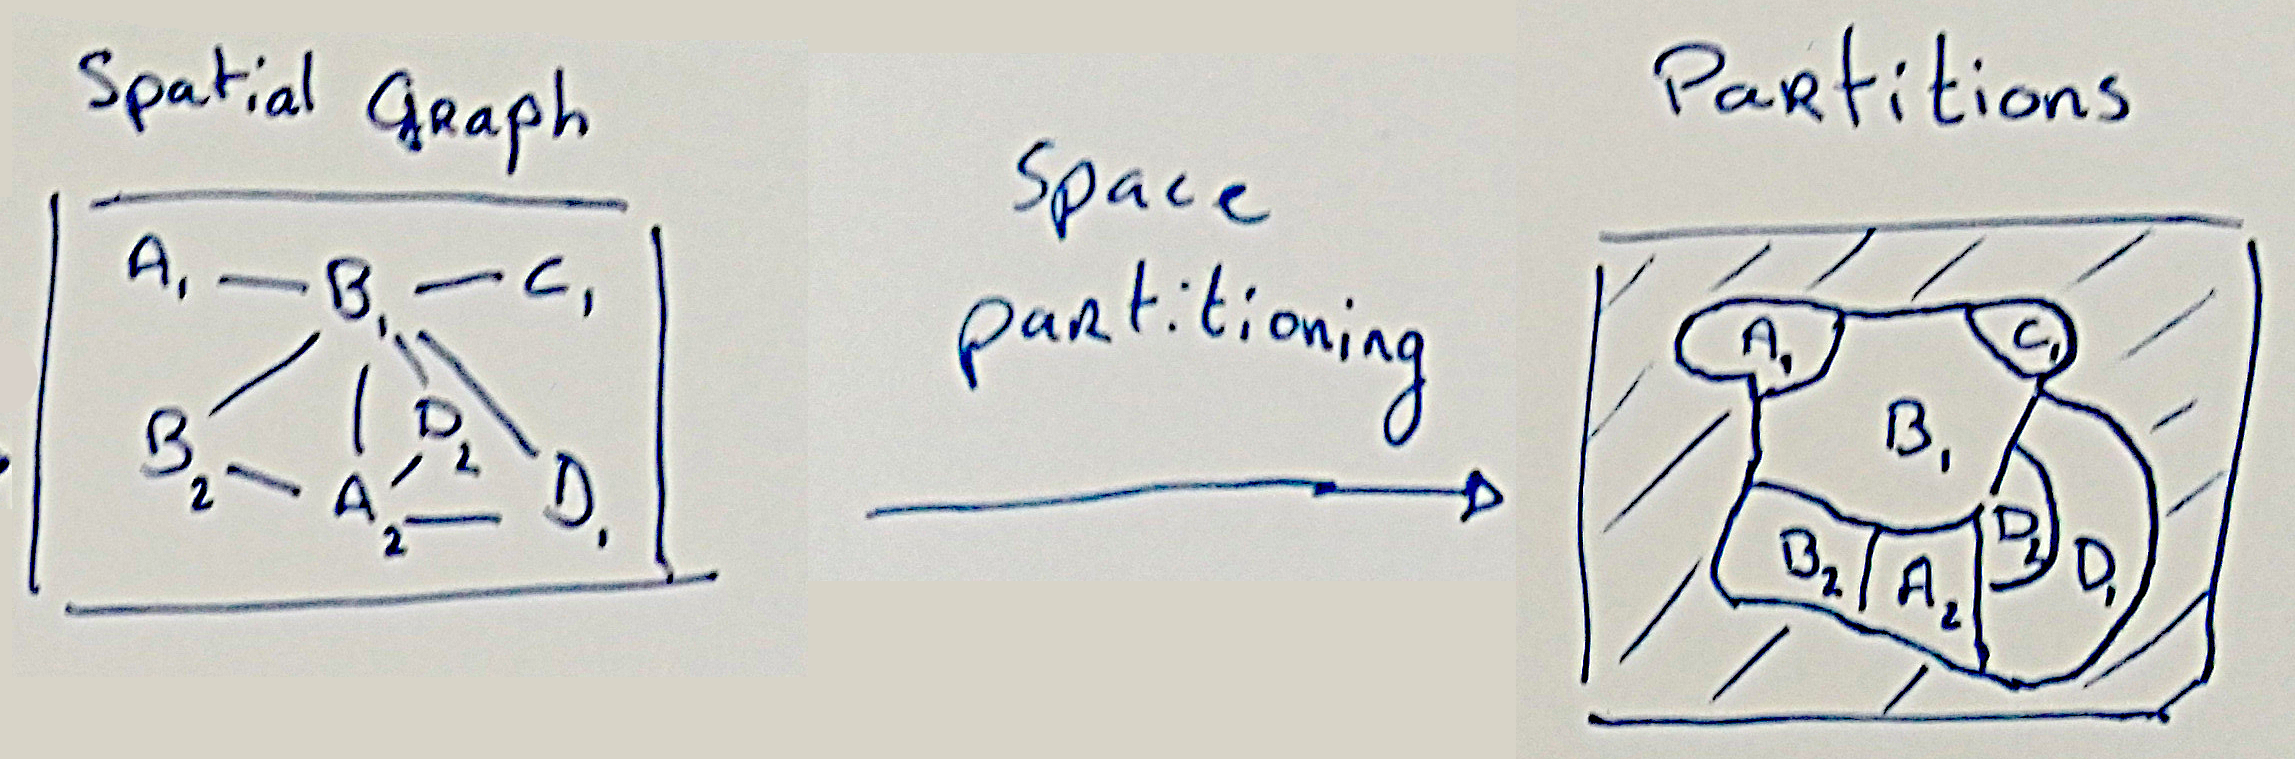 Spatial Graph
A₁ B₁ C₁
B₂ A₂ D₂ D₁
Space
partitioning
Partitions
A₁ C₁
B₁
B₂ A₂ D₂ D₁